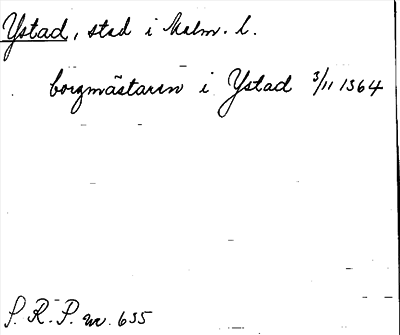 Ystad, stad i Malm. l.
borgmästaren i Ystad 3/11 1364
S. R. P. nr. 635